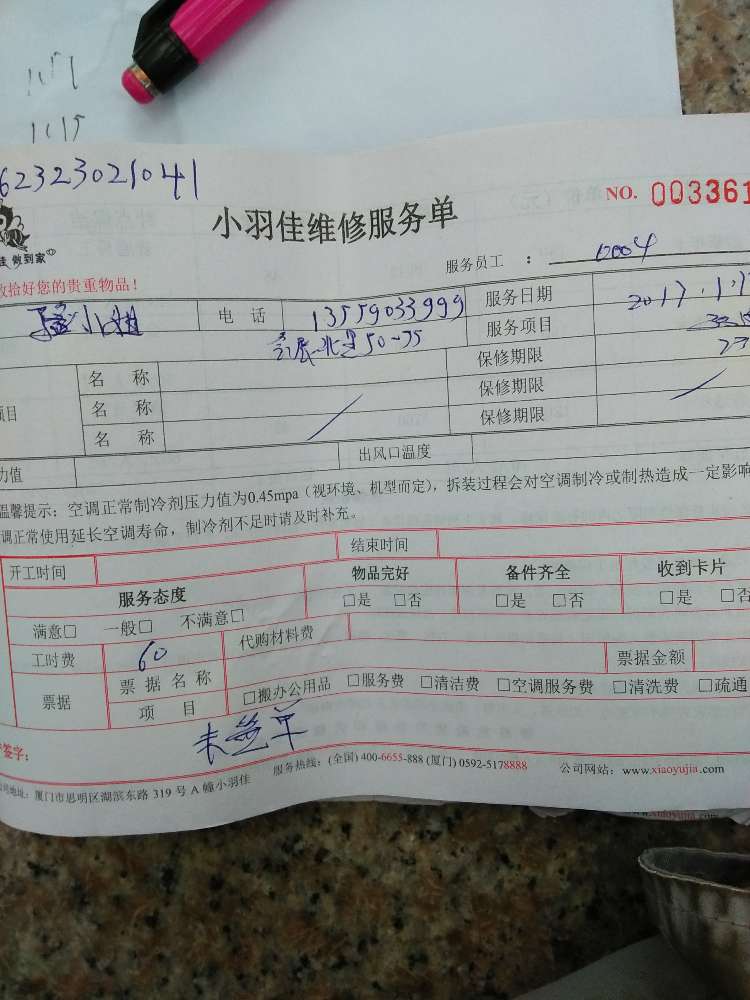 1115
62323021041
小羽佳维修服务单
NO. 003361
做到家
服务员工 : 0004
收拾好您的贵重物品!
小姐 电 话 13559033999 服务日期 2017.1.1
50-35 服务项目
名 称 保修期限
项目 名 称 保修期限
名 称 保修期限
力值 出风口温度
温馨提示:空调正常制冷剂压力值为0.45mpa(视环境、机型而定),拆装过程会对空调制冷或制热造成一定影响
调正常使用延长空调寿命,制冷剂不足时请及时补充。
开工时间 结束时间
服务态度 物品完好 备件齐全 收到卡片
满意□ 一般□ 不满意□ □是 □否 □是 □否 □是 □否
工时费 60 代购材料费
票据 票 据 名 称 票据金额
项 目 □搬办公用品 □服务费 □清洁费 □空调服务费 □清洗费 □疏通
签字: 未签单
地址:厦门市思明区湖滨东路 319 号 A 幢小羽佳 服务热线:(全国) 400-6655-888 (厦门) 0592-5178888 公司网站:www.xiaoyujia.com